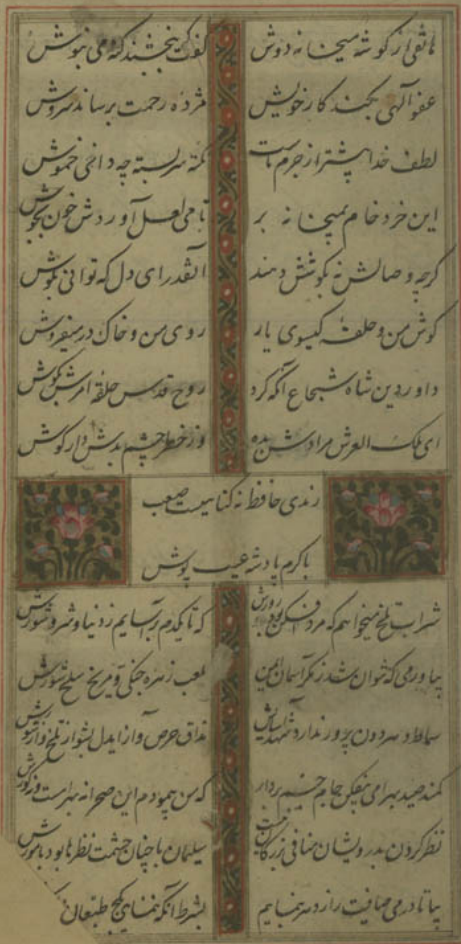 هاتفی از گوشه میخانه دوش گفت که بخشند گنه می بنوش
عفو الهی بکند کار خویش مژده رحمت برساند سروش
لطف خدا بیشتر از جرم ماست نکته سربسته چه دانی خموش
این خرد خام بمیخانه بر تا می لعل آوردش خون بجوش
گرچه وصالش نه بکوشش دهند آنقدر ای دل که توانی بکوش
گوش من و حلقه گیسوی یار روی من و خاک در میفروش
داور دین شاه شجاع آنکه کرد روح قدس حلقه امرش بگوش
ای ملک العرش مرادش بده وز خطر چشم بدش دار گوش
رندی حافظ نه گناهیست صعب
با کرم پادشه عیب پوش
شراب تلخ میخواهم که مردافکن بود زورش که تا یکدم برآسایم ز دنیا و شر و شورش
بیاور می که نتوان شد ز مکر آسمان ایمن بلعب زهره چنگی و مریخ سلحشورش
سماط دهر دون پرور ندارد شهد آسایش مذاق حرص و آز ایدل بشو از تلخ و از شورش
کمند صید بهرامی بیفکن جام جم بردار که من پیمودم این صحرا نه بهرامست و نه گورش
نظر کردن بدرویشان منافی بزرگی نیست سلیمان با چنان حشمت نظرها بود با مورش
بیا تا در می صافیت راز دهر بنمایم بشرط آنکه ننمایی بکج طبعان